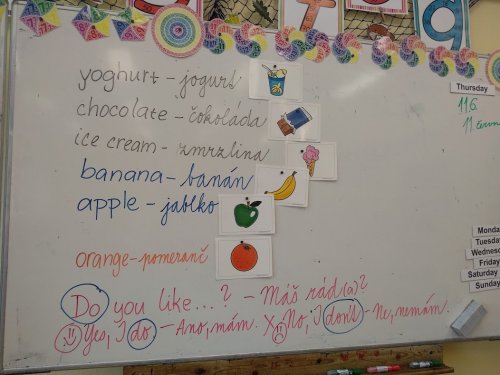 Thursday
yoghurt - jogurt
11.6.
chocolate - čokoláda
11. červn
ice cream - zmrzlina
banana - banán
apple - jablko
orange - pomeranč
Monda
Tuesda
Wednesd
Friday
Saturday
Sunday
Do you like...? - Máš rád(a)?
Yes, I do - Ano, mám. X No, I don't - Ne, nemám.